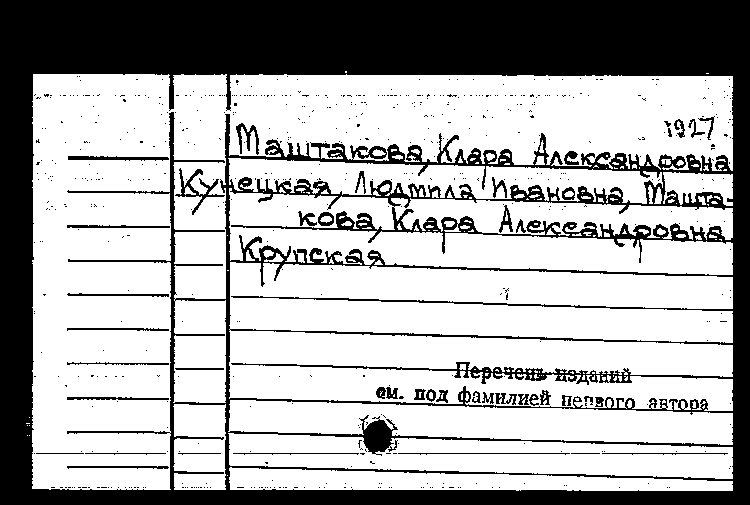 1927
Маштакова, Клара Александровна
Кунецкая, Людмила Ивановна, Машта-
кова, Клара Александровна
Крупская
Перечень изданий
см. под фамилией первого автора